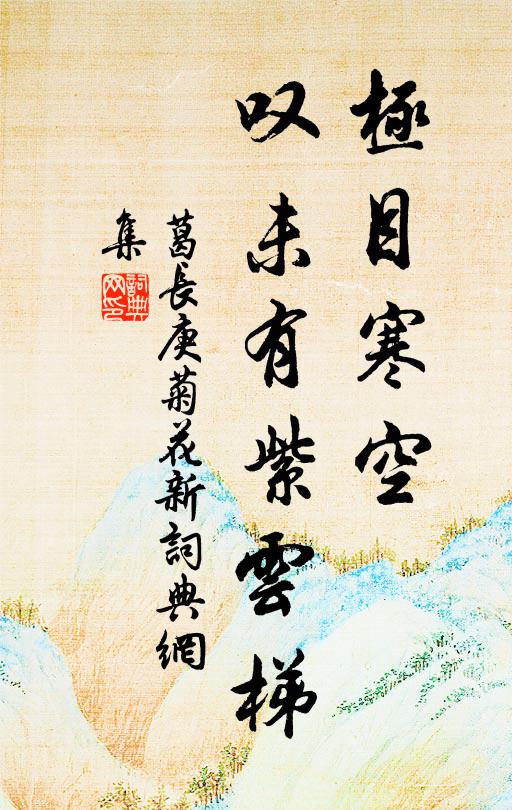 極目寒空
叹未有紫雲梯
葛長庚菊花新詞典網
集
詞典
网印